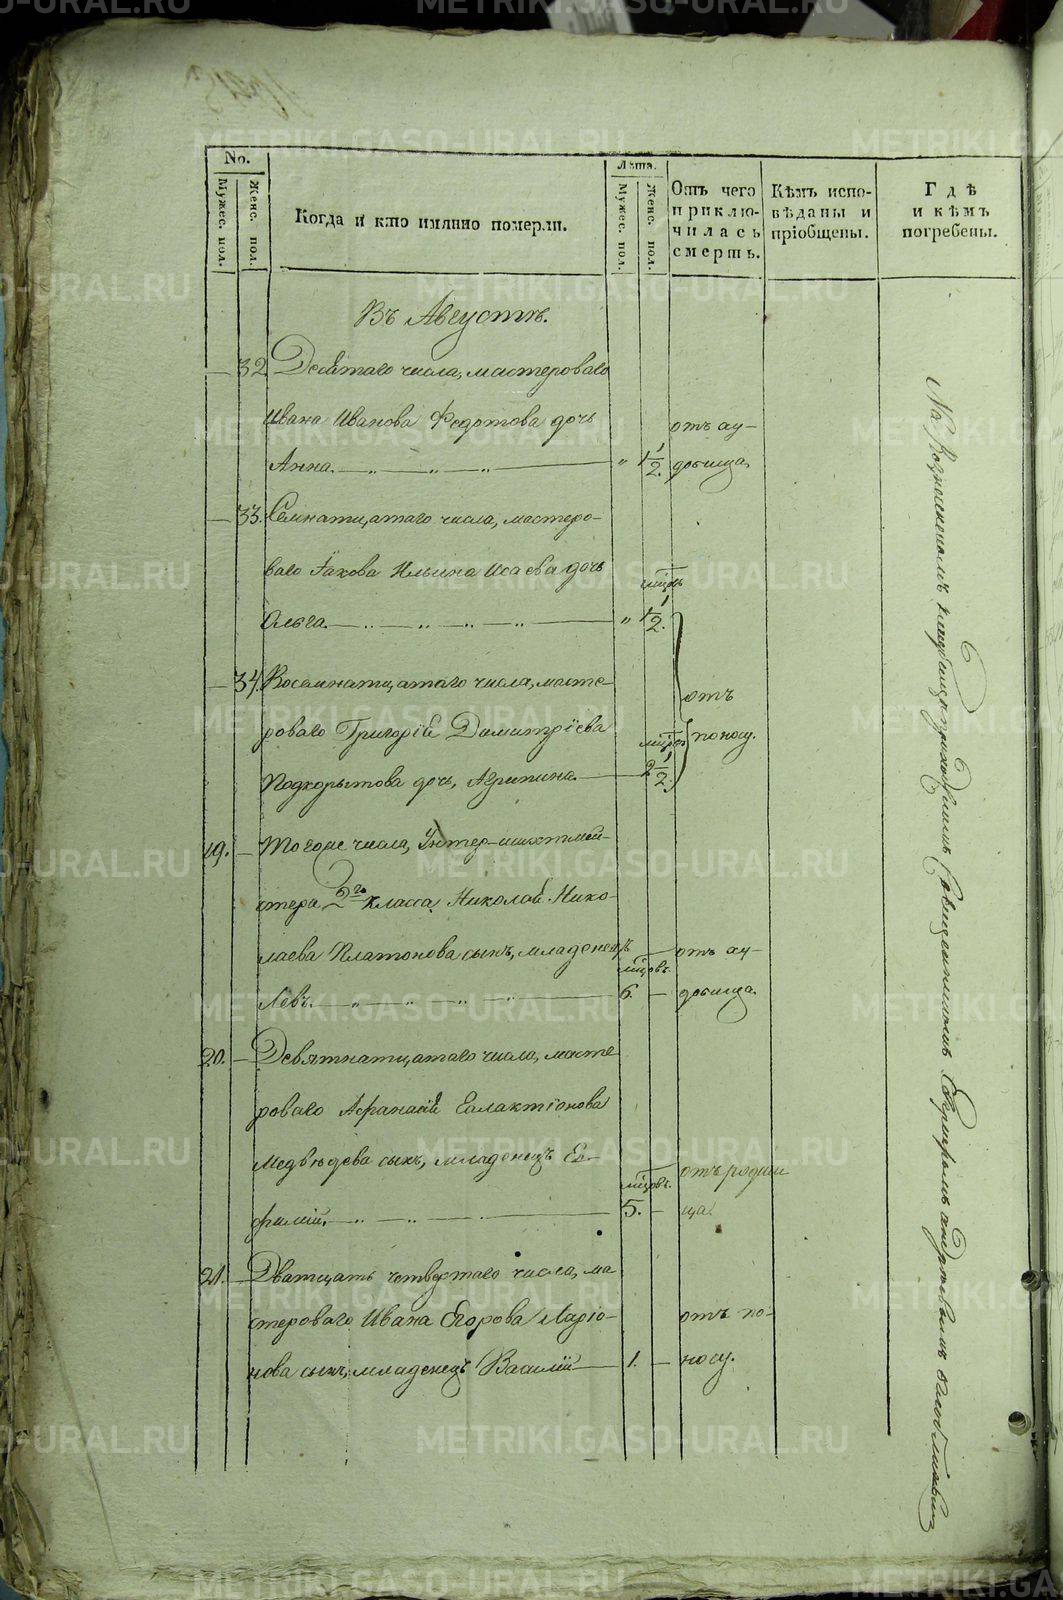 No.
Мужес. пол.
Женс. пол.
Когда и кто имянно померли.
Лѣта.
Мужес. пол.
Женс. пол.
Отъ чего приклю-
чилась
смерть.
Кѣмъ испо-
вѣданы и
пріобщены.
Гдѣ
и кѣмъ
погребены.
Въ Августѣ.
— 32 Десятаго числа, мастероваго
Ивана Иванова Федотова дочь
Анна. " 1 1/2.
отъ ау-
довища.
— 33. Семнатцатаго числа, мастеро-
ваго Іакова Ильина Исаева дочь
Ольга. " 1 1/2.
— 34. Восемнатцатаго числа, масте-
роваго Григорій Димитріева
Подкорытова дочь, Агрипина. 2 1/2.
отъ
поносу.
19. — Тогоже числа, Унтер-шихтмей-
стера 2го класса, Николай Нико-
лаева Платонова сынъ, младенецъ
Левъ. мцовъ. 6. —
отъ ау-
довища.
20. — Девятнатцатаго числа, масте-
роваго Афанасій Галактіонова
Медвѣдева сынъ, младенецъ Ев-
фимій. мцовъ. 5. —
отъ родим
ца.
21. — Дватцать четвертаго числа, ма-
стероваго Ивана Егорова Ларіо-
нова сынъ, младенецъ Василій 1. —
отъ по-
носу.
METRIKI.GASO-URAL.RU